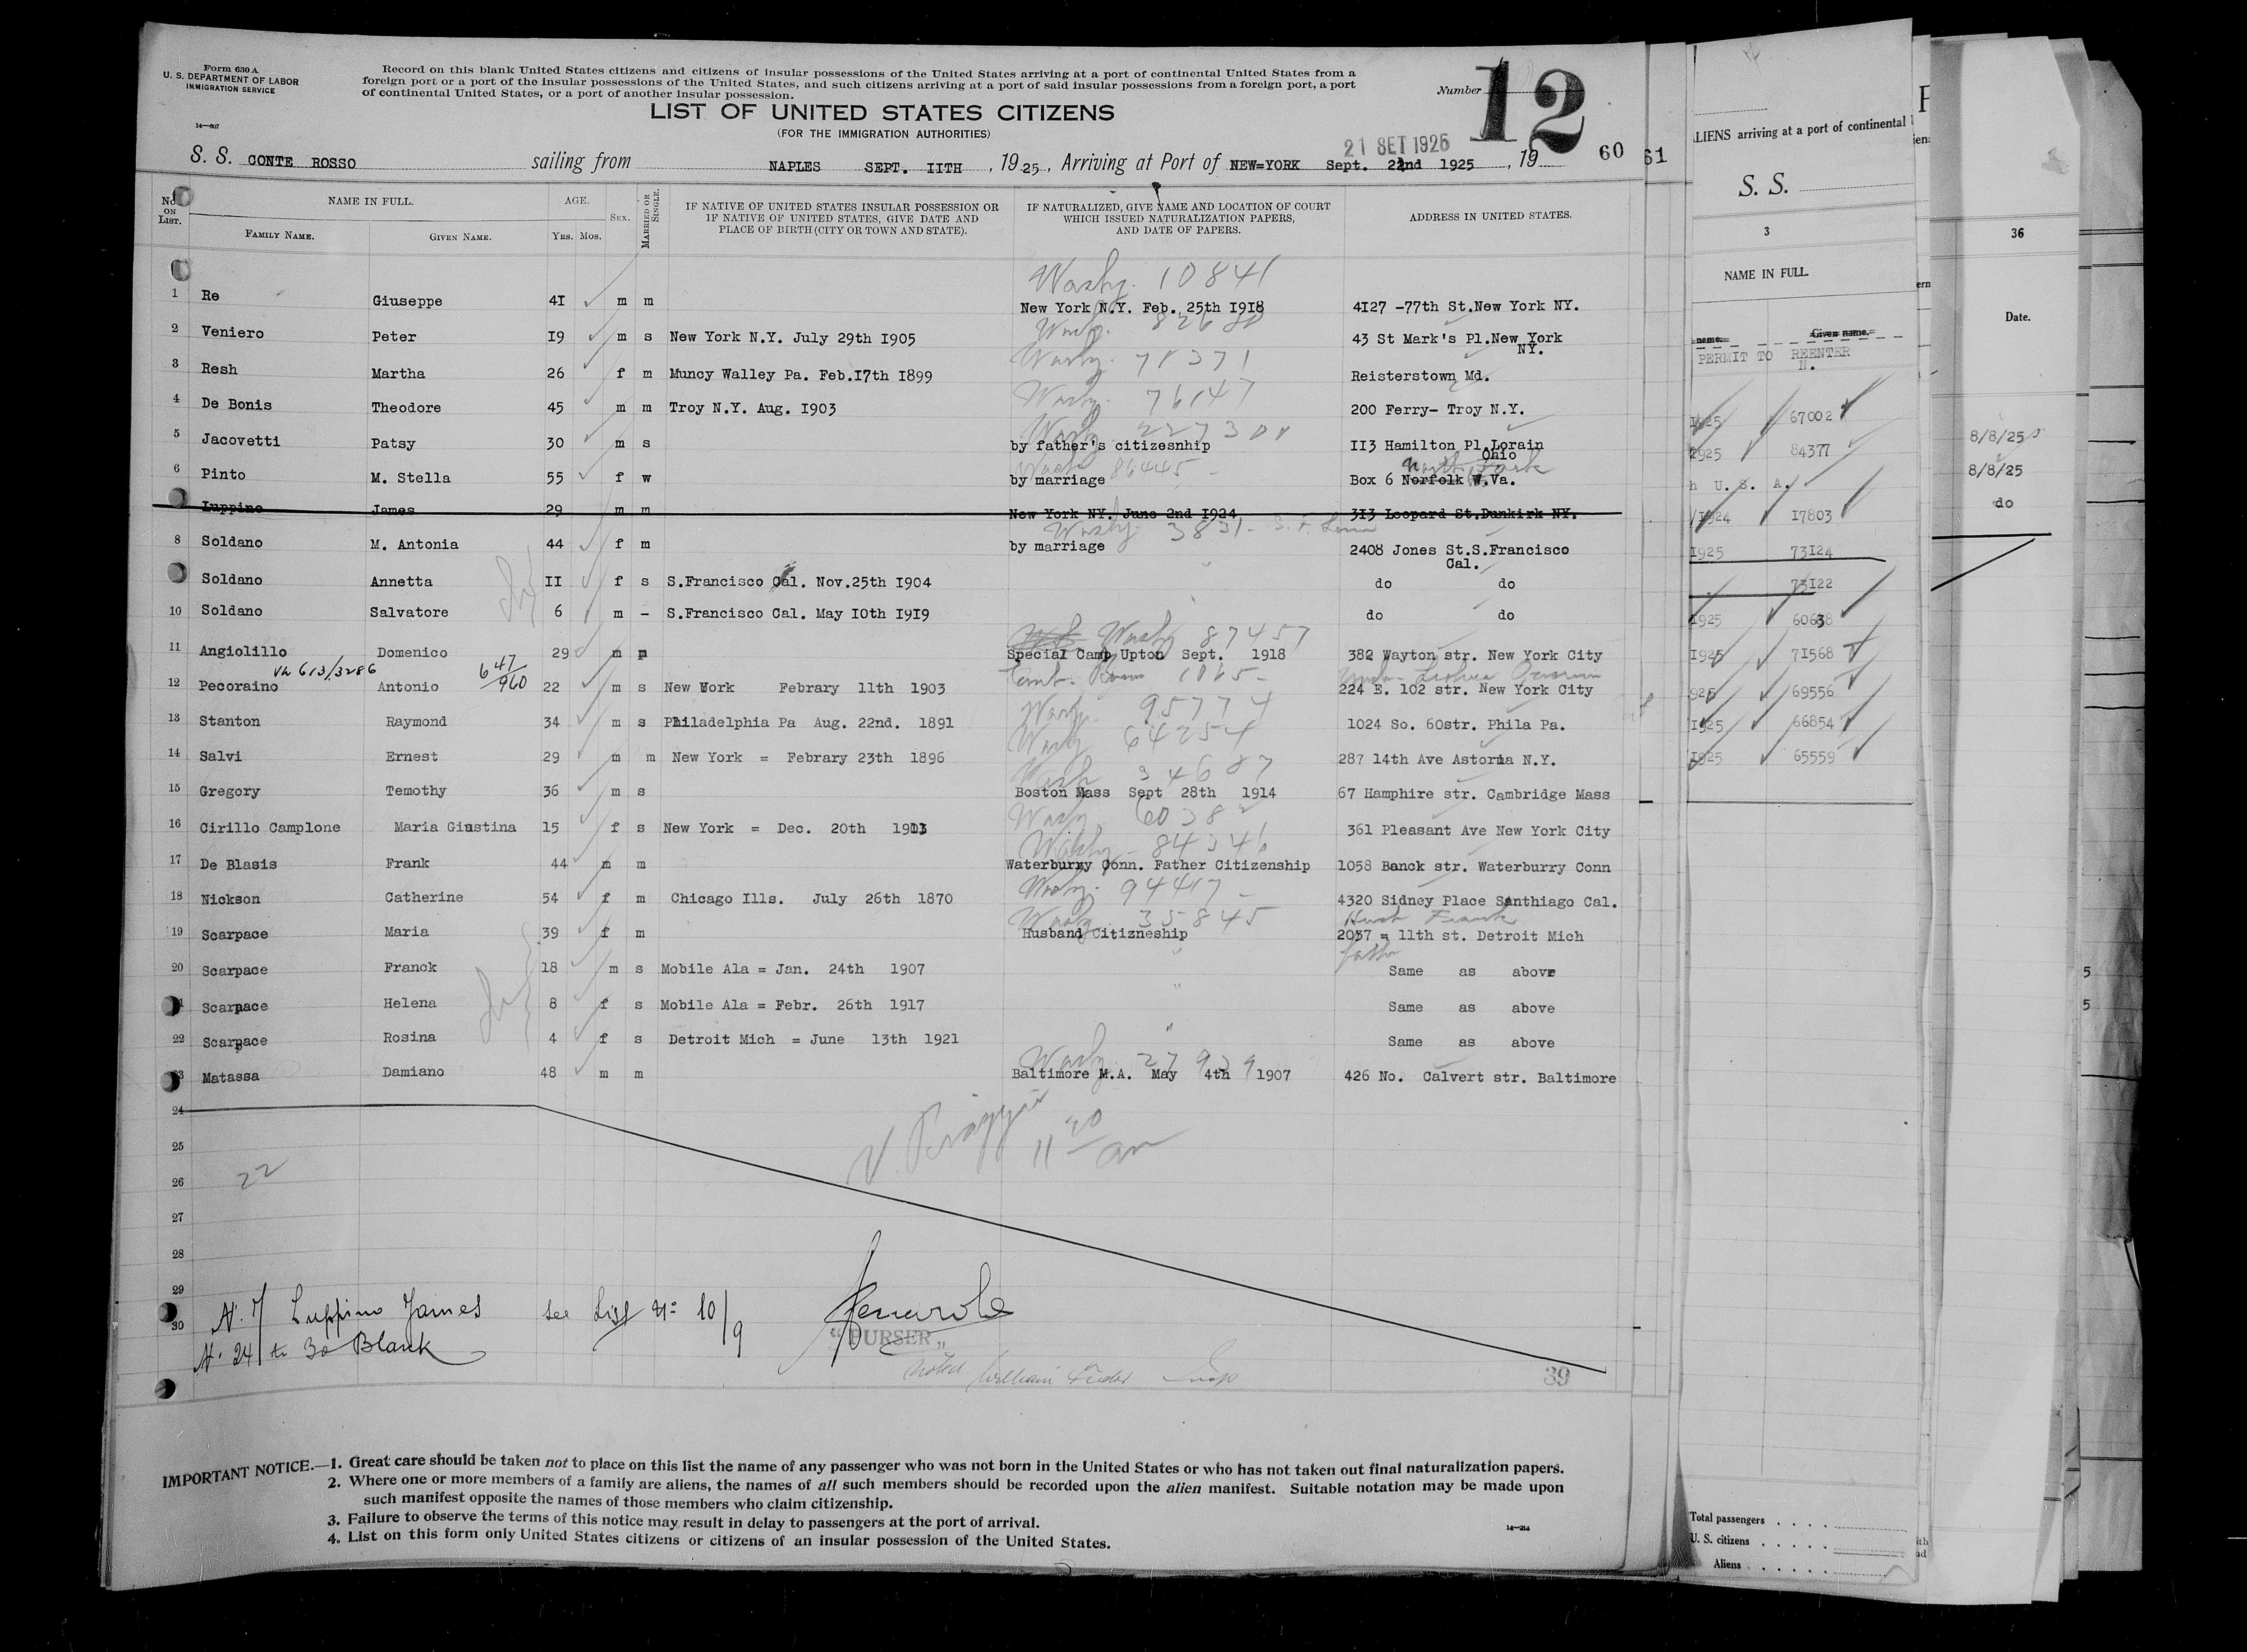 Form 630 A
U. S. DEPARTMENT OF LABOR
IMMIGRATION SERVICE
14—607
Record on this blank United States citizens and citizens of insular possessions of the United States arriving at a port of continental United States from a
foreign port or a port of the insular possessions of the United States, and such citizens arriving at a port of said insular possessions from a foreign port, a port
of continental United States, or a port of another insular possession.
Number 12
LIST OF UNITED STATES CITIZENS
(FOR THE IMMIGRATION AUTHORITIES)
21 SET 1925
S. S. CONTE ROSSO sailing from NAPLES SEPT. IITH , 1925, Arriving at Port of NEW=YORK Sept. 22nd 1925 , 19 60
No. ON LIST. NAME IN FULL. AGE. SEX. MARRIED OR SINGLE. IF NATIVE OF UNITED STATES INSULAR POSSESSION OR IF NATIVE OF UNITED STATES, GIVE DATE AND PLACE OF BIRTH (CITY OR TOWN AND STATE). IF NATURALIZED, GIVE NAME AND LOCATION OF COURT WHICH ISSUED NATURALIZATION PAPERS, AND DATE OF PAPERS. ADDRESS IN UNITED STATES.
FAMILY NAME. GIVEN NAME. YRS. MOS.
Washg. 10841
1 Re Giuseppe 4I m m New York N.Y. Feb. 25th I9I8 4I27 -77th St.New York NY.
2 Veniero Peter I9 m s New York N.Y. July 29th I905 43 St Mark's Pl.New York
NY.
Washg. 78371
3 Resh Martha 26 f m Muncy Walley Pa. Feb.I7th I899 Reisterstown Md.
Washg. 76147
4 De Bonis Theodore 45 m m Troy N.Y. Aug. I903 200 Ferry- Troy N.Y.
5 Jacovetti Patsy 30 m s by father's citizesnhip II3 Hamilton Pl.Lorain
Ohio
Wash 86445
6 Pinto M. Stella 55 f w by marriage Box 6 Norfolk W.Va.
North Fork
Luppino James 29 m m New York NY. June 2nd I924 3I3 Leopard St.Dunkirk NY.
Washg. 3831
8 Soldano M. Antonia 44 f m by marriage 2408 Jones St.S.Francisco
Cal.
Soldano Annetta II f s S.Francisco Cal. Nov.25th I904 do do
10 Soldano Salvatore 6 m - S.Francisco Cal. May I0th I9I9 do do
Washg 87457
11 Angiolillo Domenico 29 m m Special Camp Upton Sept. 1918 382 Wayton str. New York City
613/3286 647/960
12 Pecoraino Antonio 22 m s New York Febrary 11th 1903 224 E. 102 str. New York City
Washg. 95774
13 Stanton Raymond 34 m s Philadelphia Pa Aug. 22nd. 1891 1024 So. 60str. Phila Pa.
Washg 64254
14 Salvi Ernest 29 m m New York = Febrary 23th 1896 287 14th Ave Astoria N.Y.
Wash 34687
15 Gregory Temothy 36 m s Boston Mass Sept 28th 1914 67 Hamphire str. Cambridge Mass
Washg. 60382
16 Cirillo Camplone Maria Giustina 15 f s New York = Dec. 20th 1903 361 Pleasant Ave New York City
Washg - 84346
17 De Blasis Frank 44 m m Waterburry Conn. Father Citizenship 1058 Banck str. Waterburry Conn
Washg. 94417
18 Nickson Catherine 54 f m Chicago Ills. July 26th 1870 4320 Sidney Place Santhiago Cal.
Washg. 35845 Husb Frank
19 Scarpace Maria 39 f m Husband Citizneship 2057 = 11th st. Detroit Mich
father
20 Scarpace Franck 18 m s Mobile Ala = Jan. 24th 1907 " Same as above
Scarpace Helena 8 f s Mobile Ala = Febr. 26th 1917 " Same as above
22 Scarpace Rosina 4 f s Detroit Mich = June 13th 1921 " Same as above
Washg. 27929
23 Matassa Damiano 48 m m Baltimore M.A. May 4th 1907 426 No. Calvert str. Baltimore
24
25
11 30 am
22
26
27
28
29
30
N. 7 Luppino James see List No 10/9
N. 24 to 30 Blank
"PURSER"
Noted William Insp
39
IMPORTANT NOTICE.—1. Great care should be taken not to place on this list the name of any passenger who was not born in the United States or who has not taken out final naturalization papers.
2. Where one or more members of a family are aliens, the names of all such members should be recorded upon the alien manifest. Suitable notation may be made upon
such manifest opposite the names of those members who claim citizenship.
3. Failure to observe the terms of this notice may result in delay to passengers at the port of arrival.
4. List on this form only United States citizens or citizens of an insular possession of the United States.
14—214
61
ALIENS arriving at a port of continental
S. S.
3
NAME IN FULL.
name. Given name.
PERMIT TO REENTER
N.
I925 67002
I925 84377
h U.S. A.
/I924 I7803
I925 73I24
73I22
I925 60638
I925 71568
925 69556
I925 66854
I925 65559
Total passengers
U. S. citizens
Aliens
36
Date.
8/8/25
8/8/25
do
5
5